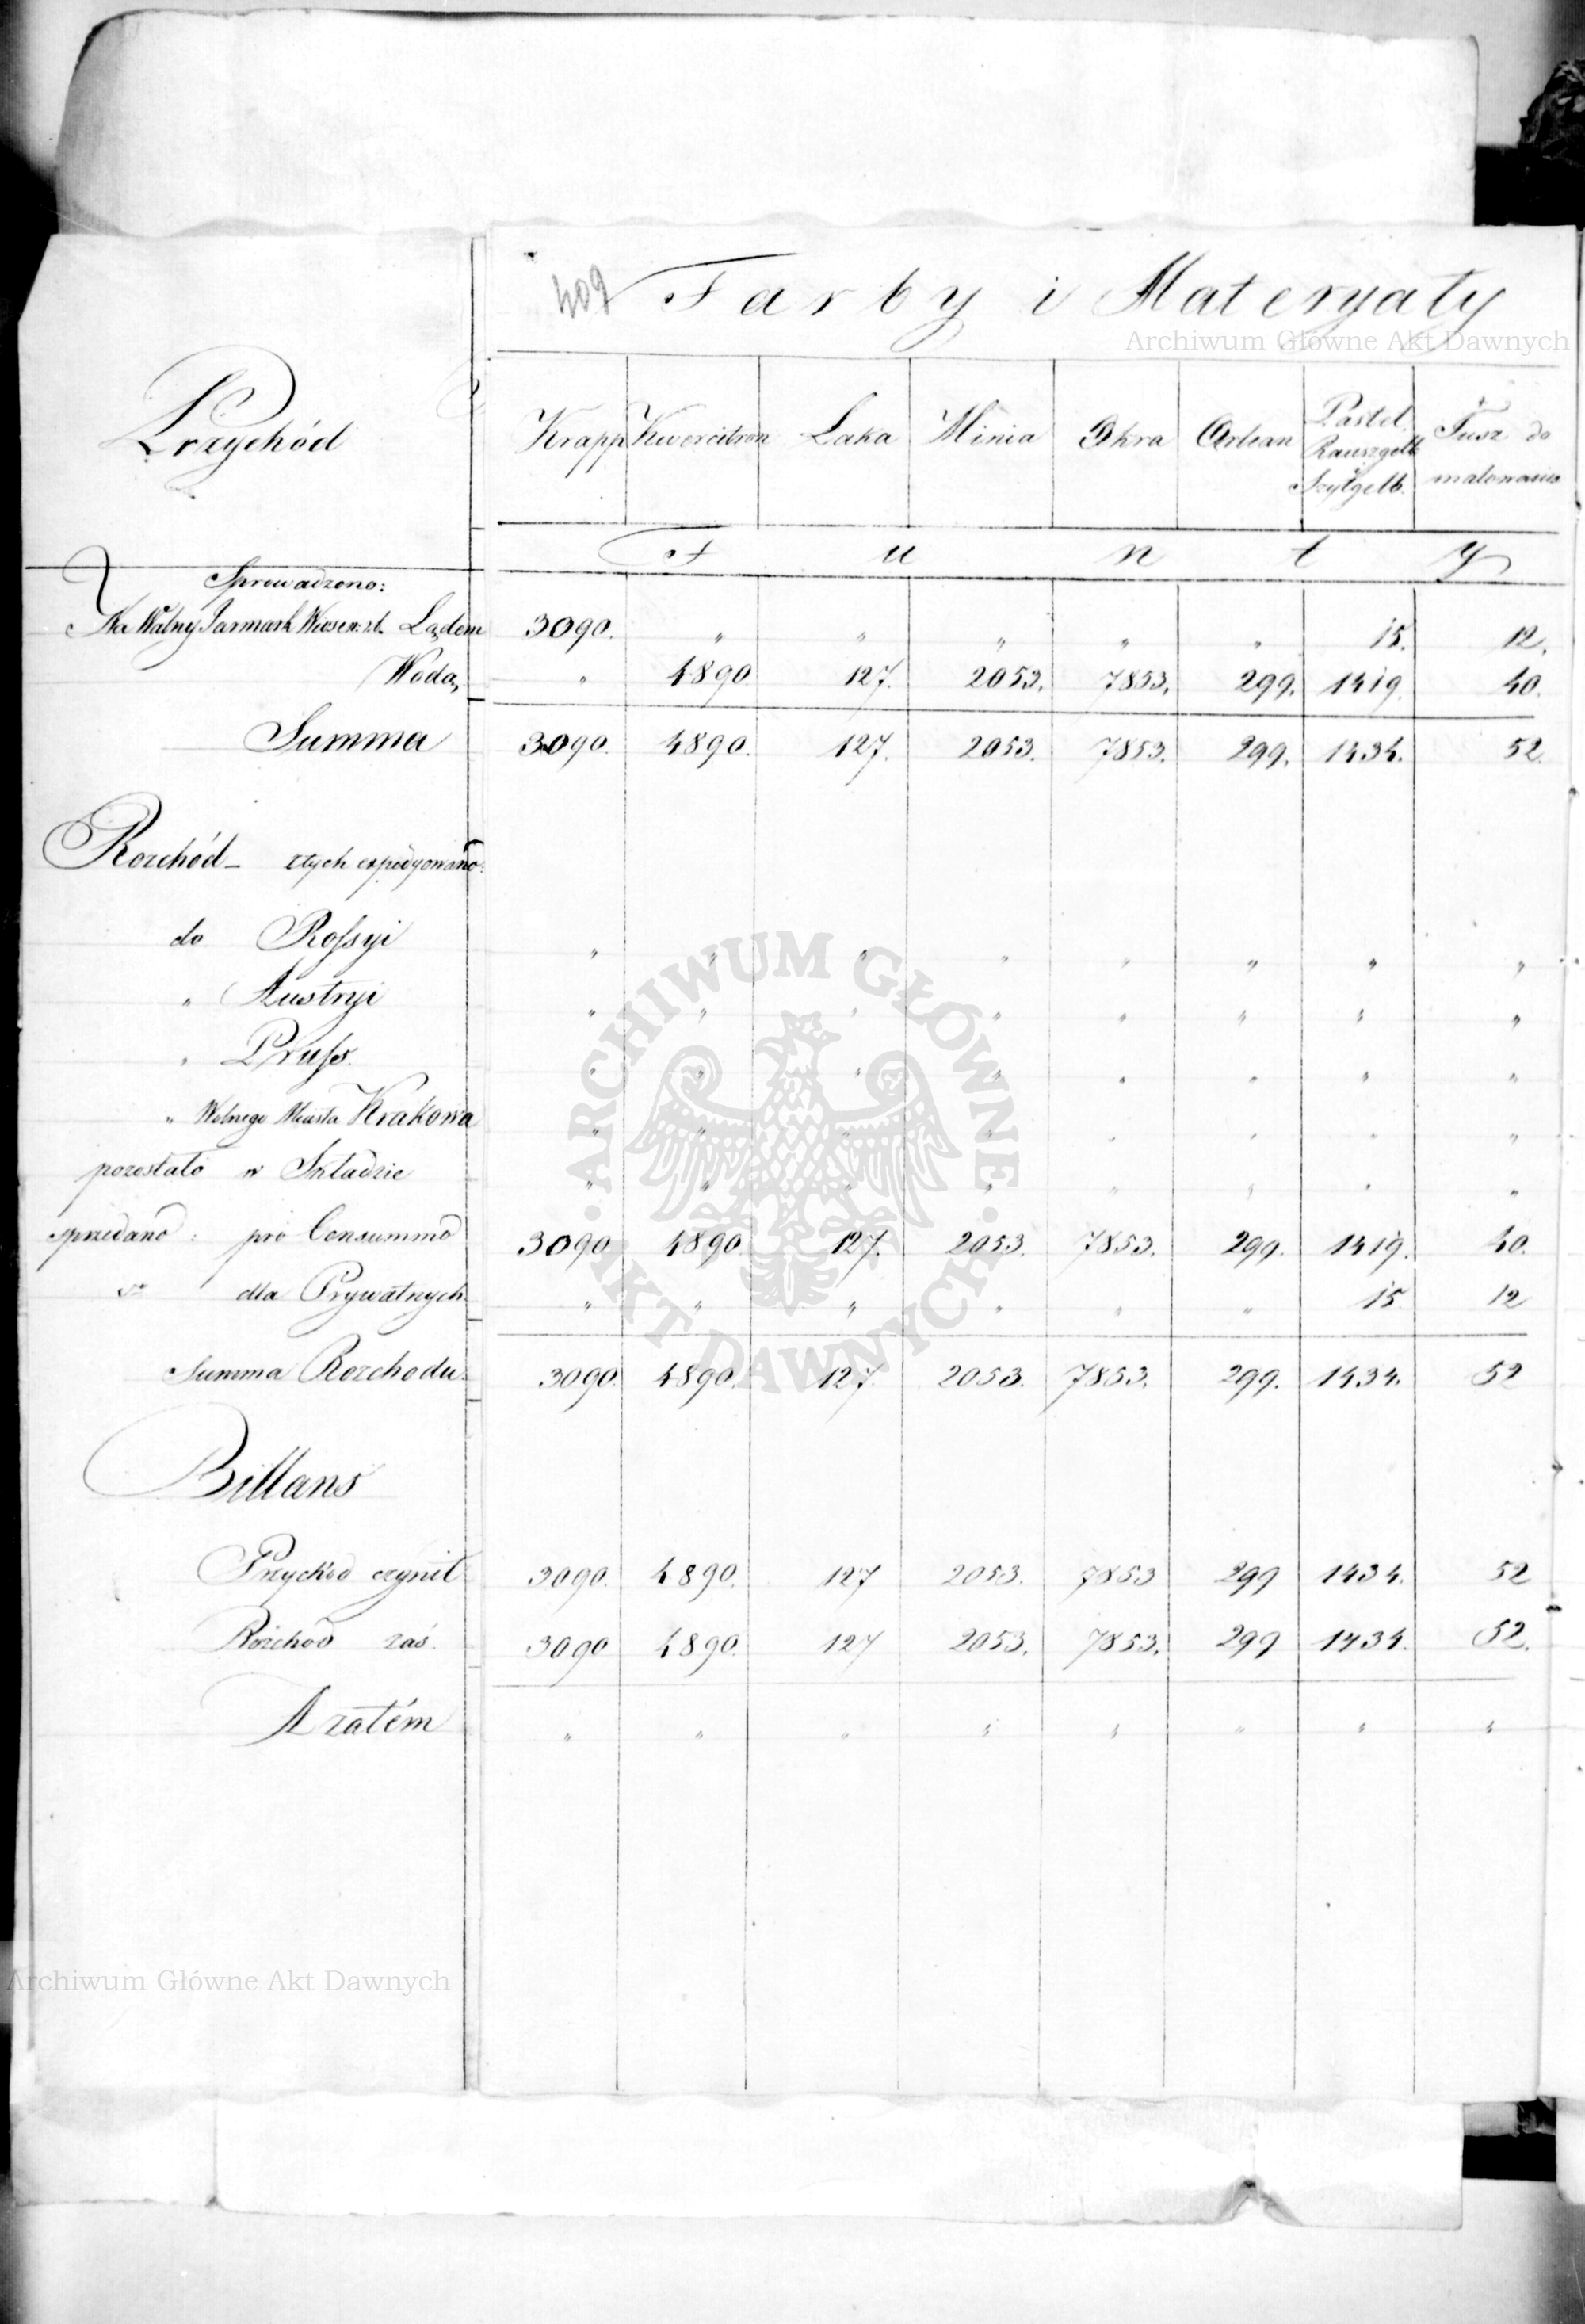 409 Farby i Materyały
Archiwum Główne Akt Dawnych
Przychód
Krapp Kwercitron Laka Minia Okra Orlean Pastel. Rauszgelb i Szytgelb. Tusz do malowania
F u n t y
Sprowadzono:
Na Walny Jarmark Wiosen: zt. Lądem 3090. " " " " " 15. 12.
Wodą " 4890. 127. 2053. 7853. 299. 1419. 40.
Summa 3090. 4890. 127. 2053. 7853. 299. 1434. 52.
Rozchód – z tych expedyowano:
do Rossyi " " " " " " " "
" Austryi " " " " " " " "
" Pruss " " " " " " " "
" Wolnego Miasta Krakowa " " " " " " " "
pozostało w Składzie " " " " " " " "
sprzedano: pro Consummo 3090 4890 127. 2053. 7853. 299. 1419. 40.
dla Prywatnych " " " " " " 15. 12
Summa Rozchodu 3090. 4890. 127. 2053. 7853. 299. 1434. 52
Billans
Przychód czynił 3090. 4890. 127 2053. 7853 299 1434. 52
Rozchód zaś 3090 4890. 127 2053. 7853. 299 1434. 52.
A zatém " " " " " " " "
ARCHIWUM GŁÓWNE · AKT DAWNYCH ·
Archiwum Główne Akt Dawnych